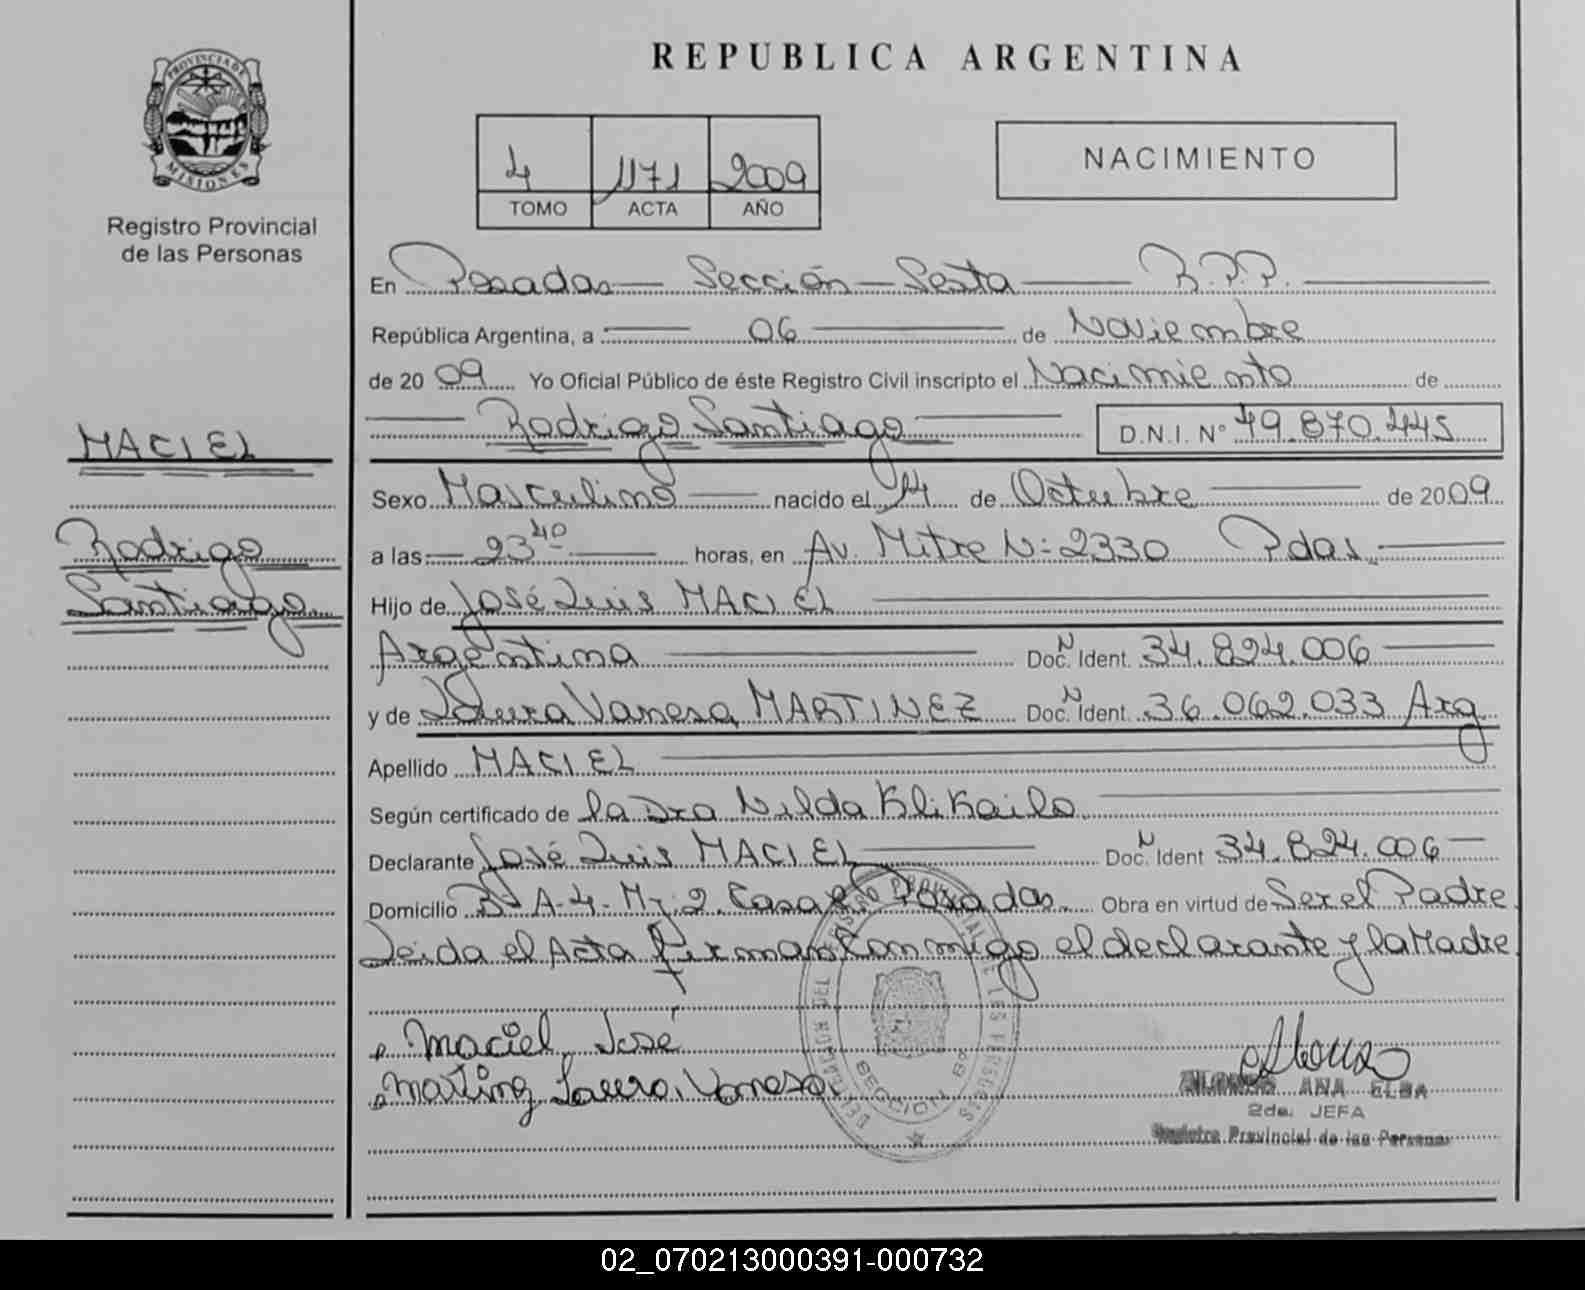 PROVINCIA DE
MISIONES
Registro Provincial
de las Personas
MACIEL
Rodrigo
Santiago
REPUBLICA ARGENTINA
4 1171 2009
TOMO ACTA AÑO
NACIMIENTO
En Posadas - Sección - Sexta - R.P.P.
República Argentina, a 06 de Noviembre
de 2009 Yo Oficial Público de éste Registro Civil inscripto el Nacimiento de
Rodrigo Santiago D.N.I. N° 49.870.445
Sexo Masculino nacido el 14 de Octubre de 2009
a las 23 40 horas, en Av. Mitre N: 2330 Pdas.
Hijo de José Luis MACIEL
Argentina Doc. N Ident. 34.824.006
y de Laura Vanesa MARTINEZ Doc. N Ident. 36.062.033 Arg
Apellido MACIEL
Según certificado de la Dra Nilda Klikailo
Declarante José Luis MACIEL Doc. N Ident 34.824.006
Domicilio Bº A-4- Mz 2 Casa Posadas. Obra en virtud de Ser el Padre
Leida el Acta firman conmigo el declarante y la Madre
Maciel, José
Martinez Laura, Vanesa
SECCION 6ª
ALONSO ANA ELBA
2da. JEFA
Registro Provincial de las Personas
02_070213000391-000732